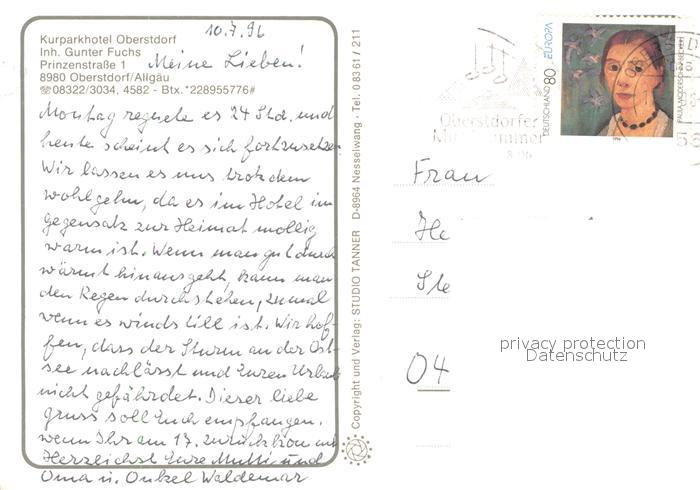 10.7.96
Kurparkhotel Oberstdorf
Inh. Gunter Fuchs
Prinzenstraße 1
8980 Oberstdorf/Allgäu
☏08322/3034, 4582 - Btx.*228955776#
Meine Lieben!
Montag regnete es 24 Std. und
heute scheint es sich fortzusetzen.
Wir lassen es uns trotzdem
wohlgehn, da es im Hotel im
gegensatz zur Heimat mollig
warm ist. Wenn man gut durch
wärmt hinausgeht, kann man
den Regen durchstehen, zumal
wenn es windstill ist. Wir hof-
fen, dass der Sturm an der Ost-
see nachlässt und Euren Urlaub
nicht gefährdet. Dieser liebe
gruss soll Euch empfangen,
wenn Ihr am 17. zurück
Herzlichst Eure Mutti und
Oma u. Onkel Waldemar
Copyright und Verlag: STUDIO TANNER D-8964 Nesselwang · Tel. 0 83 61 / 211
Oberstdorfer
Musiksommer
DEUTSCHLAND 80 EUROPA
PAULA MODERSOHN-BECKER
Frau
He
Ste
04
privacy protection
Datenschutz